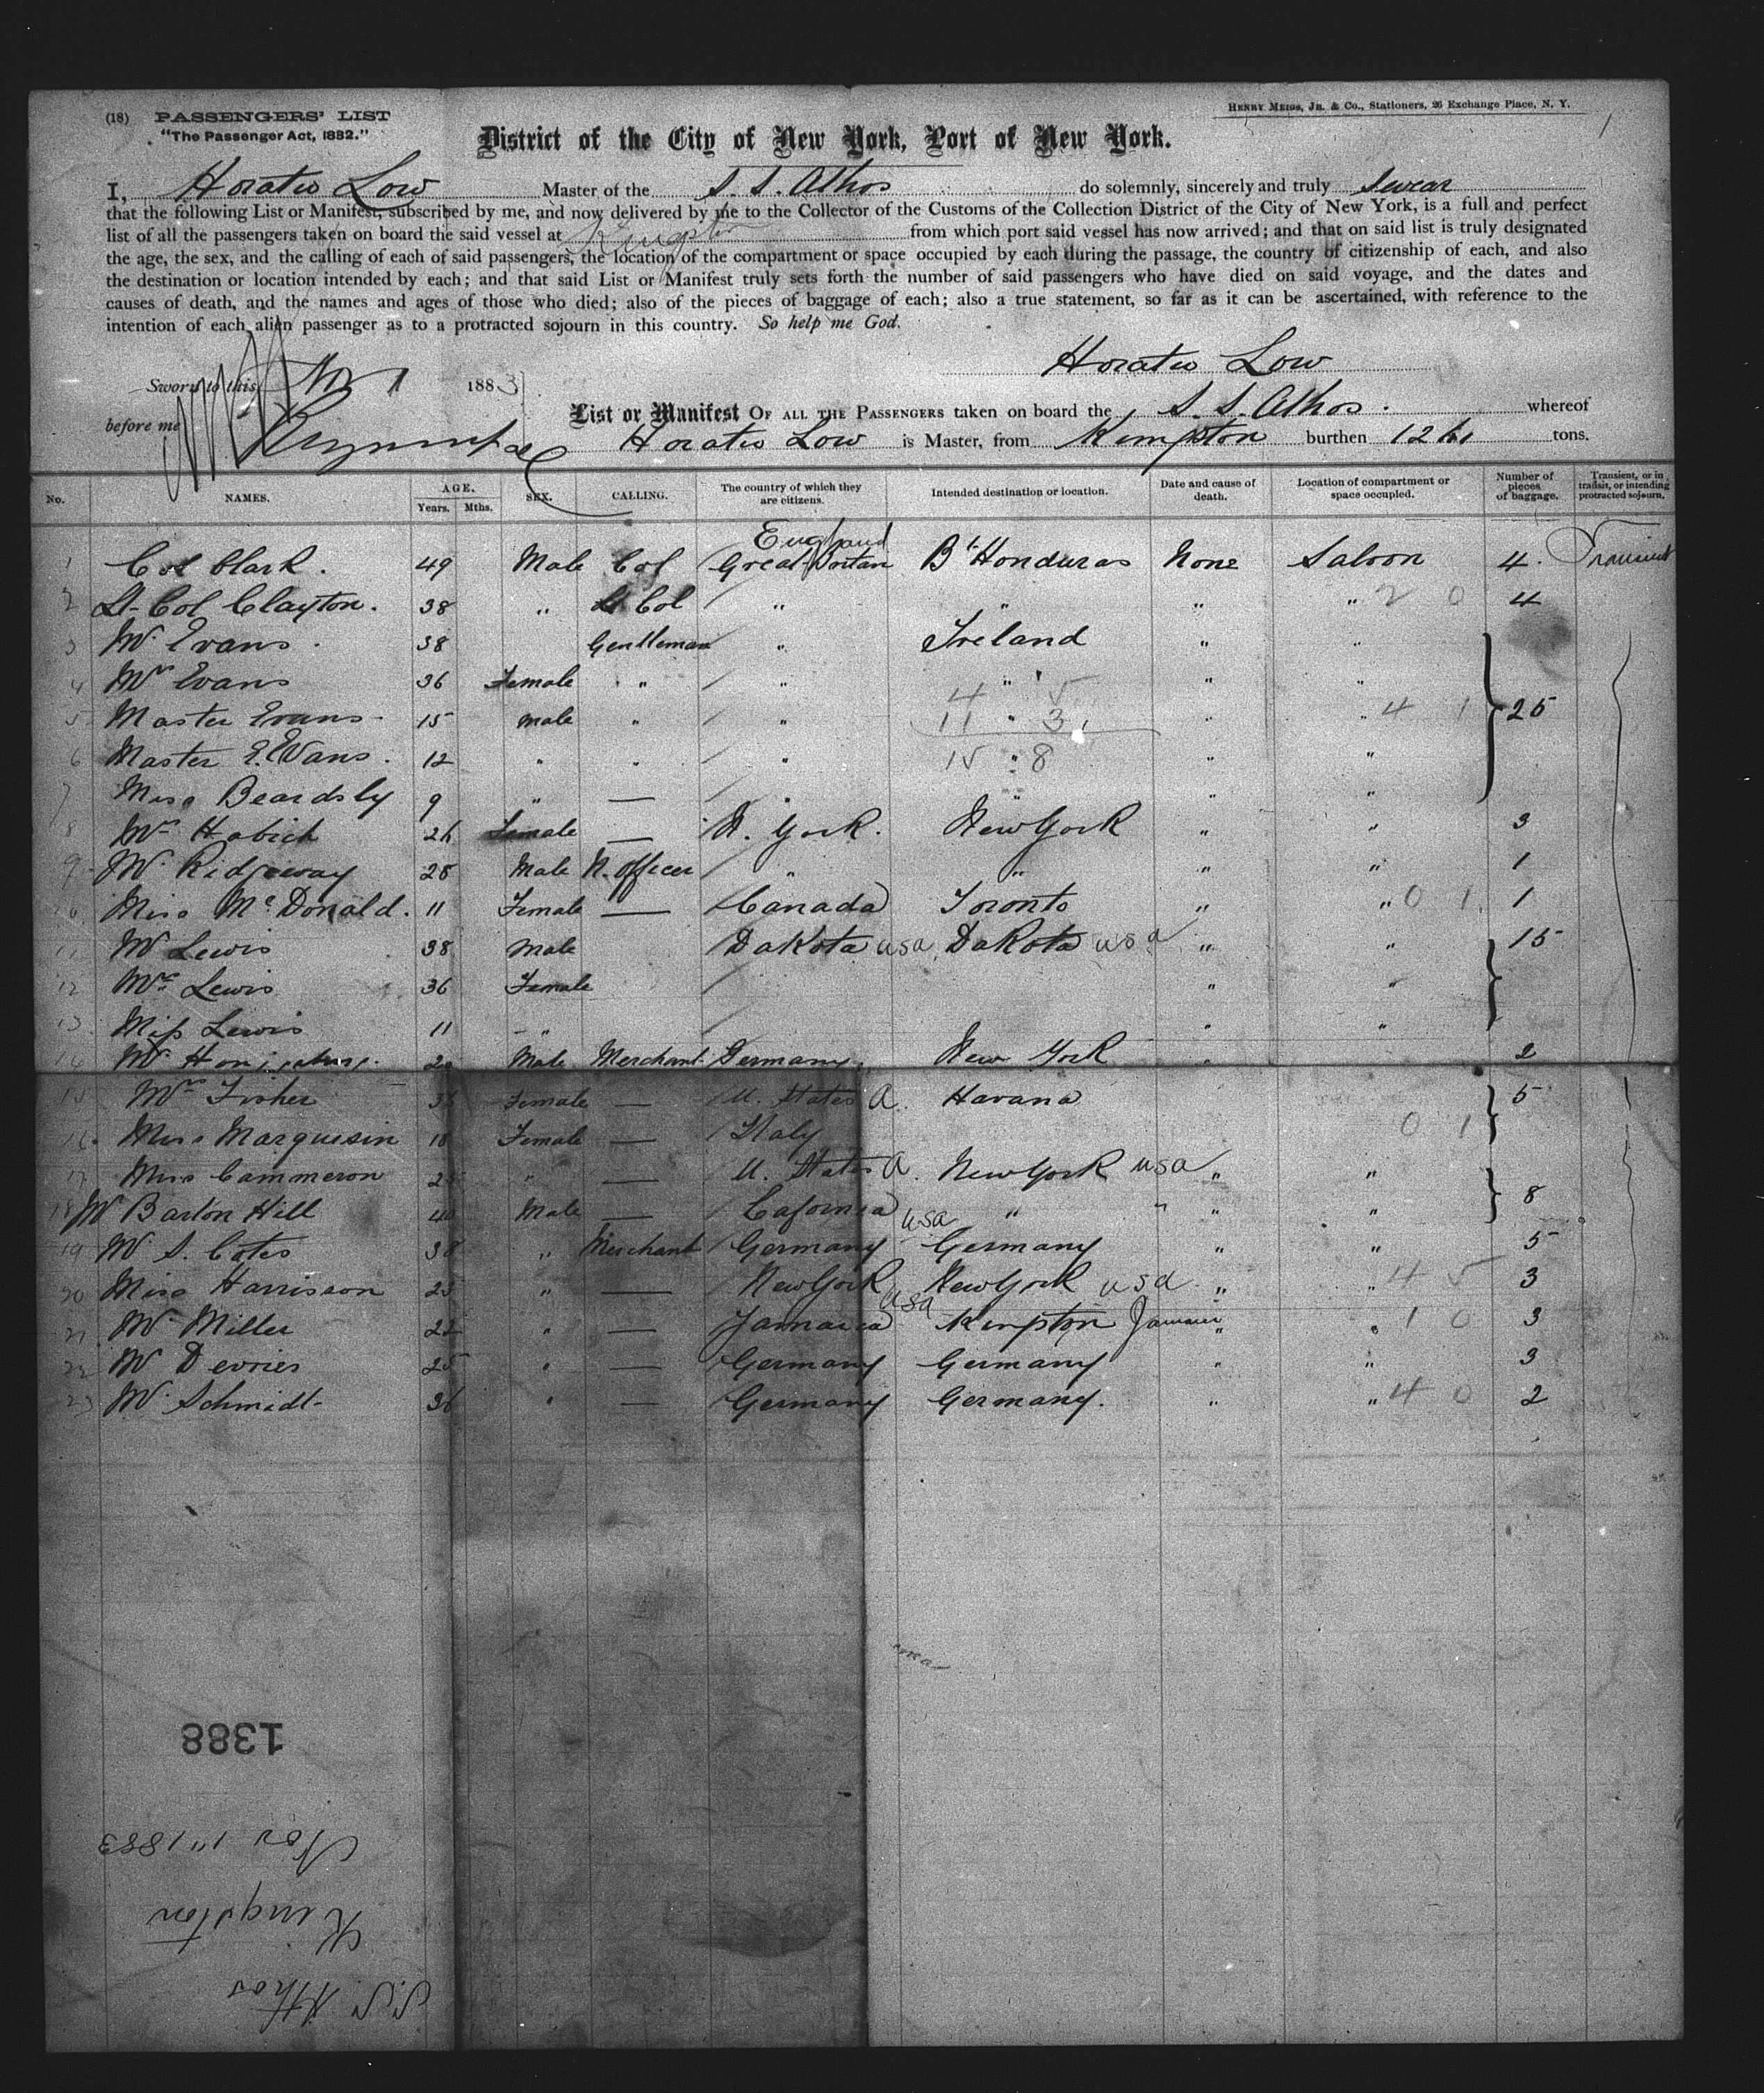 HENRY MEIGS, JR. & Co., Stationers, 26 Exchange Place, N. Y.
(18) PASSENGERS' LIST
1
"The Passenger Act, 1882."
District of the City of New York, Port of New York.
I, Horatio Low Master of the S. S. Athos do solemnly, sincerely and truly swear
that the following List or Manifest, subscribed by me, and now delivered by me to the Collector of the Customs of the Collection District of the City of New York, is a full and perfect
list of all the passengers taken on board the said vessel at Kingston from which port said vessel has now arrived; and that on said list is truly designated
the age, the sex, and the calling of each of said passengers, the location of the compartment or space occupied by each during the passage, the country of citizenship of each, and also
the destination or location intended by each; and that said List or Manifest truly sets forth the number of said passengers who have died on said voyage, and the dates and
causes of death, and the names and ages of those who died; also of the pieces of baggage of each; also a true statement, so far as it can be ascertained, with reference to the
intention of each alien passenger as to a protracted sojourn in this country. So help me God.
Horatio Low
Sworn to this Nov 1 1883
before me
List or Manifest OF ALL THE PASSENGERS taken on board the S. S. Athos. whereof
Horatio Low is Master, from Kingston burthen tons.
No. NAMES. AGE. Years. Mths. SEX. CALLING. The country of which they are citizens. Intended destination or location. Date and cause of death. Location of compartment or space occupied. Number of pieces of baggage. Transient, or in transit, or intending protracted sojourn.
England
1 Col Clark. 49 Male Col Great Britan Bt Honduras None Saloon 4. Transient
2 Lt-Col Clayton. 38 " Lt Col " " " " 2 0 4
3 Mr Evans 38 Gentleman " Ireland " "
4 Mrs Evans 36 Female " " " " "
4 5
5 Master Evans 15 male " " " " " 4 1 25
11 3
6 Master E. Evans. 12 " " " " " "
15 8
7 Miss Beardsly 9 " — " " " "
8 Mrs Habich 26 Female — N. York. New York " " 3
9 Mr Ridgeway 28 Male N. Officer " " " " 1
10 Miss McDonald. 11 Female — Canada Toronto " " 0 1 1
11 Mr Lewis 38 Male Dakota usa Dakota usa " " 15
12 Mrs Lewis 36 Female " "
13 Miss Lewis 11 " " "
14 Mr Male Merchant Germany New York " 2
15 Mrs Fisher Female — U. States A. Havana 5
16 Miss Marquesin 18 Female — Italy 0 1
17 Miss Cammeron — U. States A. New York usa " "
18 Mr Barton Hill 40 Male — Cafornia usa " " " " 8
19 Mr S. Cotes 38 " Merchant Germany Germany " " 5
20 Miss Harrisson " — New York usa New York usa " " 4 5 3
21 Mr Miller 22 " — Jamaica Kingston Jamaica " " 1 0 3
22 Mr Devries 25 " — Germany Germany " " 3
23 Mr Schmidt 36 " — Germany Germany. " " 4 0 2
1388
Nov 1" 1883
Kingston
S.S. Athos